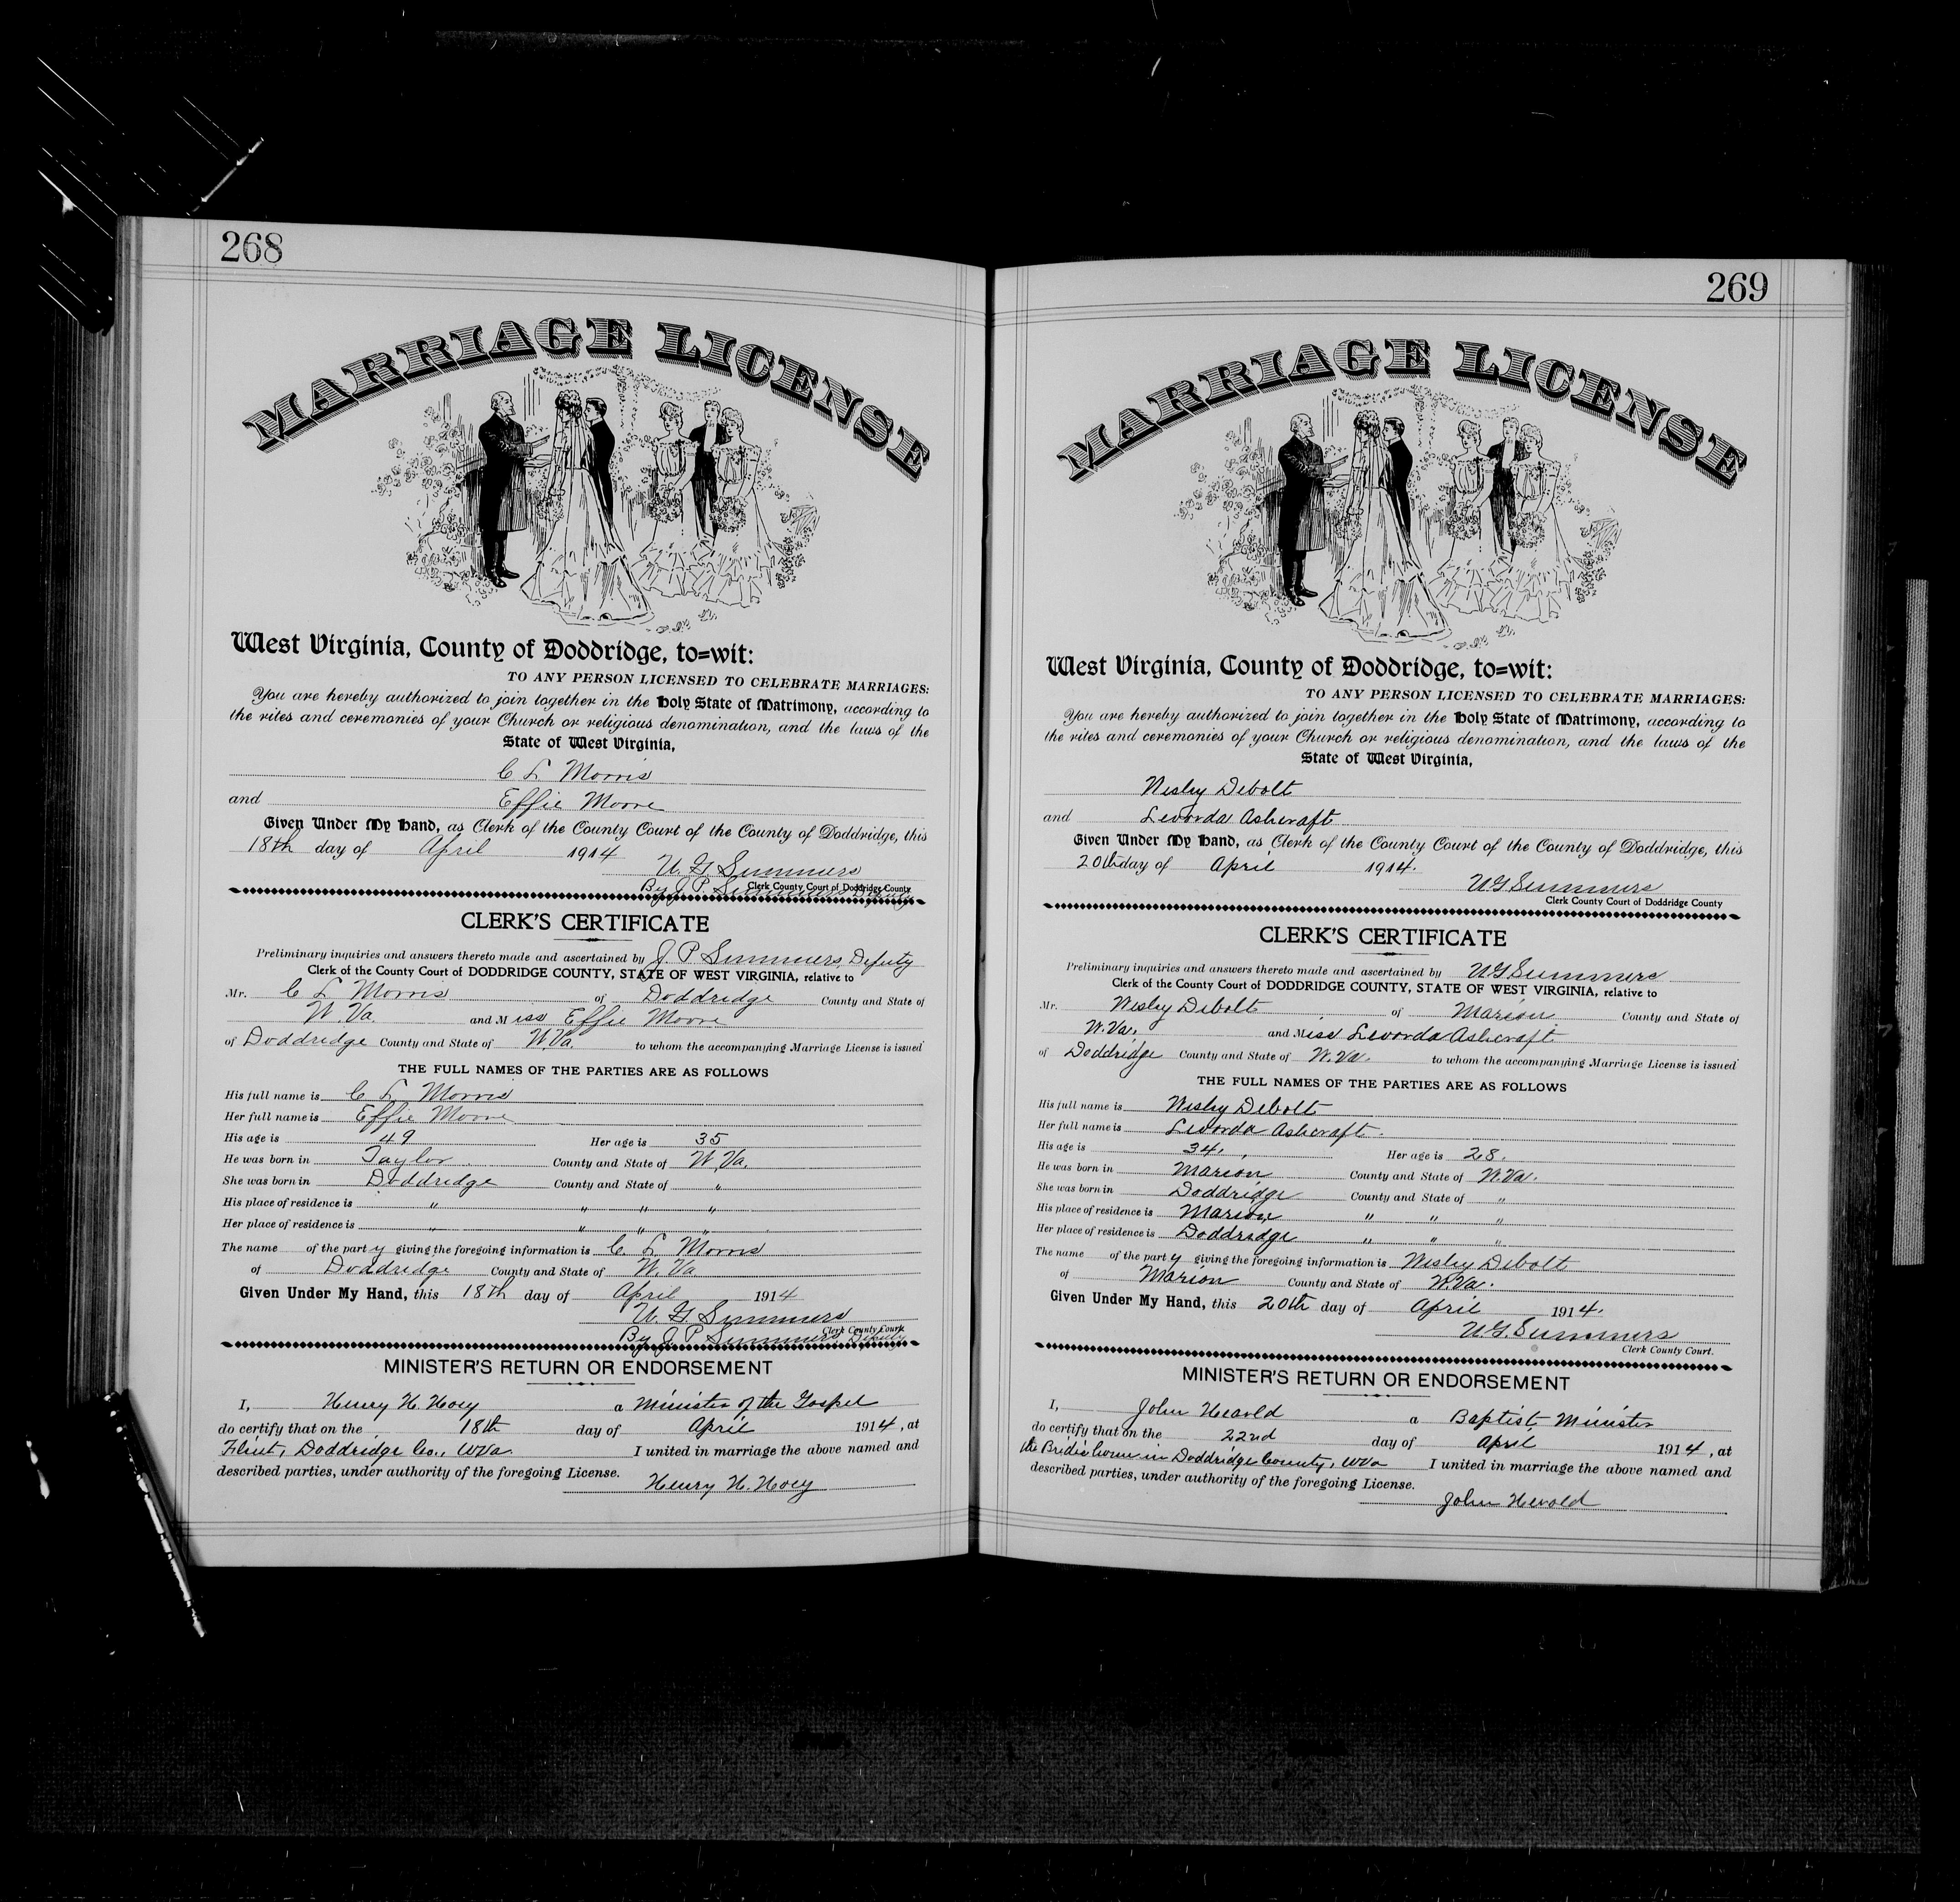 268
MARRIAGE LICENSE
West Virginia, County of Doddridge, to=wit:
TO ANY PERSON LICENSED TO CELEBRATE MARRIAGES:
You are hereby authorized to join together in the Holy State of Matrimony, according to
the rites and ceremonies of your Church or religious denomination, and the laws of the
State of West Virginia,
C L Morris
and Effie Moore
Given Under My Hand, as Clerk of the County Court of the County of Doddridge, this
18th day of April 1914
U. G Summers
Clerk County Court of Doddridge County
By J. P. Summers Deputy
CLERK'S CERTIFICATE
Preliminary inquiries and answers thereto made and ascertained by J. P Summers, Deputy
Clerk of the County Court of DODDRIDGE COUNTY, STATE OF WEST VIRGINIA, relative to
Mr. C L Morris of Doddridge County and State of
W. Va. and Miss Effie Moore
of Doddridge County and State of W.Va. to whom the accompanying Marriage License is issued
THE FULL NAMES OF THE PARTIES ARE AS FOLLOWS
His full name is C L Morris
Her full name is Effie Moore
His age is 49 Her age is 35
He was born in Taylor County and State of W Va.
She was born in Doddridge County and State of "
His place of residence is " " " "
Her place of residence is " " " "
The name of the party giving the foregoing information is C. L. Morris
of Doddridge County and State of W. Va
Given Under My Hand, this 18th day of April 1914
U. G Summers
Clerk County Court.
By J. P. Summers, Deputy
MINISTER'S RETURN OR ENDORSEMENT
I, Henry H. Hoey a Minister of the Gospel
do certify that on the 18th day of April 1914, at
Flint, Doddridge Co., WVa. I united in marriage the above named and
described parties, under authority of the foregoing License.
Henry H. Hoey
269
MARRIAGE LICENSE
West Virginia, County of Doddridge, to=wit:
TO ANY PERSON LICENSED TO CELEBRATE MARRIAGES:
You are hereby authorized to join together in the Holy State of Matrimony, according to
the rites and ceremonies of your Church or religious denomination, and the laws of the
State of West Virginia,
Wesley Debolt
and Levorda Ashcraft
Given Under My Hand, as Clerk of the County Court of the County of Doddridge, this
20th day of April 1914.
U.G. Summers
Clerk County Court of Doddridge County
CLERK'S CERTIFICATE
Preliminary inquiries and answers thereto made and ascertained by U.G. Summers
Clerk of the County Court of DODDRIDGE COUNTY, STATE OF WEST VIRGINIA, relative to
Mr. Wesley Debolt of Marion County and State of
W.Va. and Miss Levorda Ashcraft
of Doddridge County and State of W.Va. to whom the accompanying Marriage License is issued
THE FULL NAMES OF THE PARTIES ARE AS FOLLOWS
His full name is Wesley Debolt
Her full name is Levorda Ashcraft.
His age is 34. Her age is 28.
He was born in Marion County and State of W.Va.
She was born in Doddridge County and State of "
His place of residence is Marion " " "
Her place of residence is Doddridge " " "
The name of the party giving the foregoing information is Wesley Debolt
of Marion County and State of W.Va.
Given Under My Hand, this 20th day of April 1914.
U.G. Summers
Clerk County Court.
MINISTER'S RETURN OR ENDORSEMENT
I, John Herold a Baptist Minister
do certify that on the 22nd day of April 1914, at
the Brides home in Doddridge County, WVa I united in marriage the above named and
described parties, under authority of the foregoing License.
John Herold